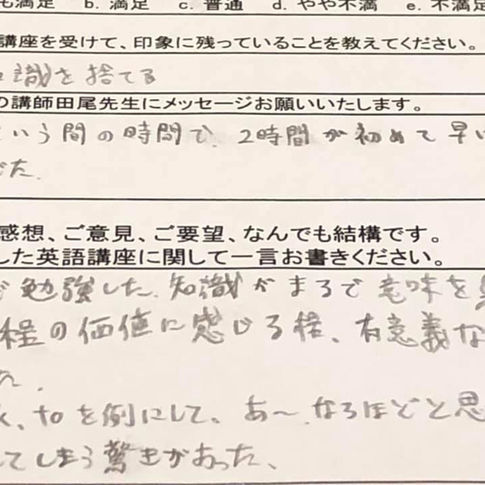 も満足 b. 満足 c. 普通 d. やや不満 e. 不満足
講座を受けて、印象に残っていることを教えてください。
知識を捨てる
の講師田尾先生にメッセージお願いいたします。
という間の時間で、2時間が初めて早い
でた。
感想、ご意見、ご要望、なんでも結構です。
した英語講座に関して一言お書きください。
で勉強した知識がまるで意味を
程の価値に感じる様、有意義な
た。
、toを例にして、あ〜、なるほどと思
してしまう驚きがあった、